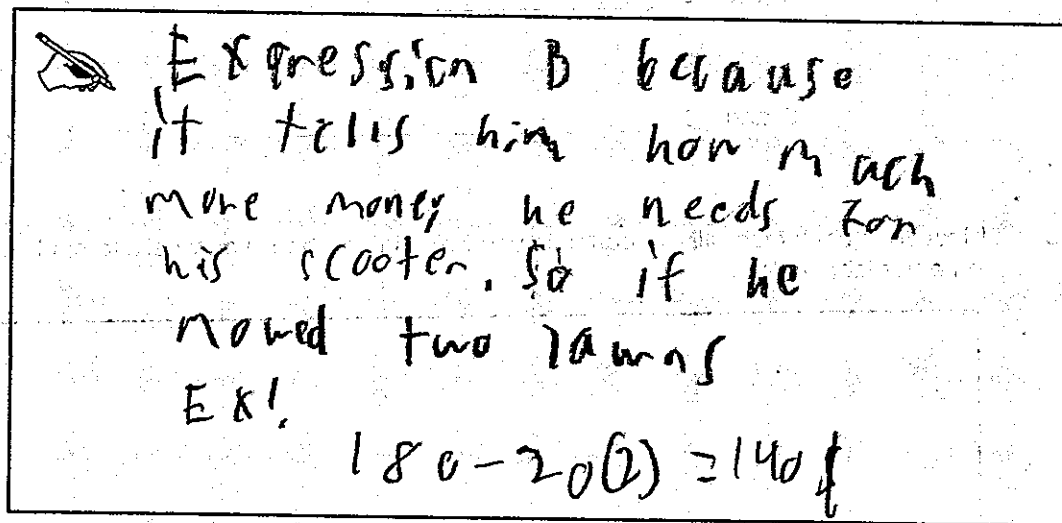 Expression B because
it tells him how much
more money he needs for
his scooter. So if he
mowed two lawns
EX!
180-20(2)=140$